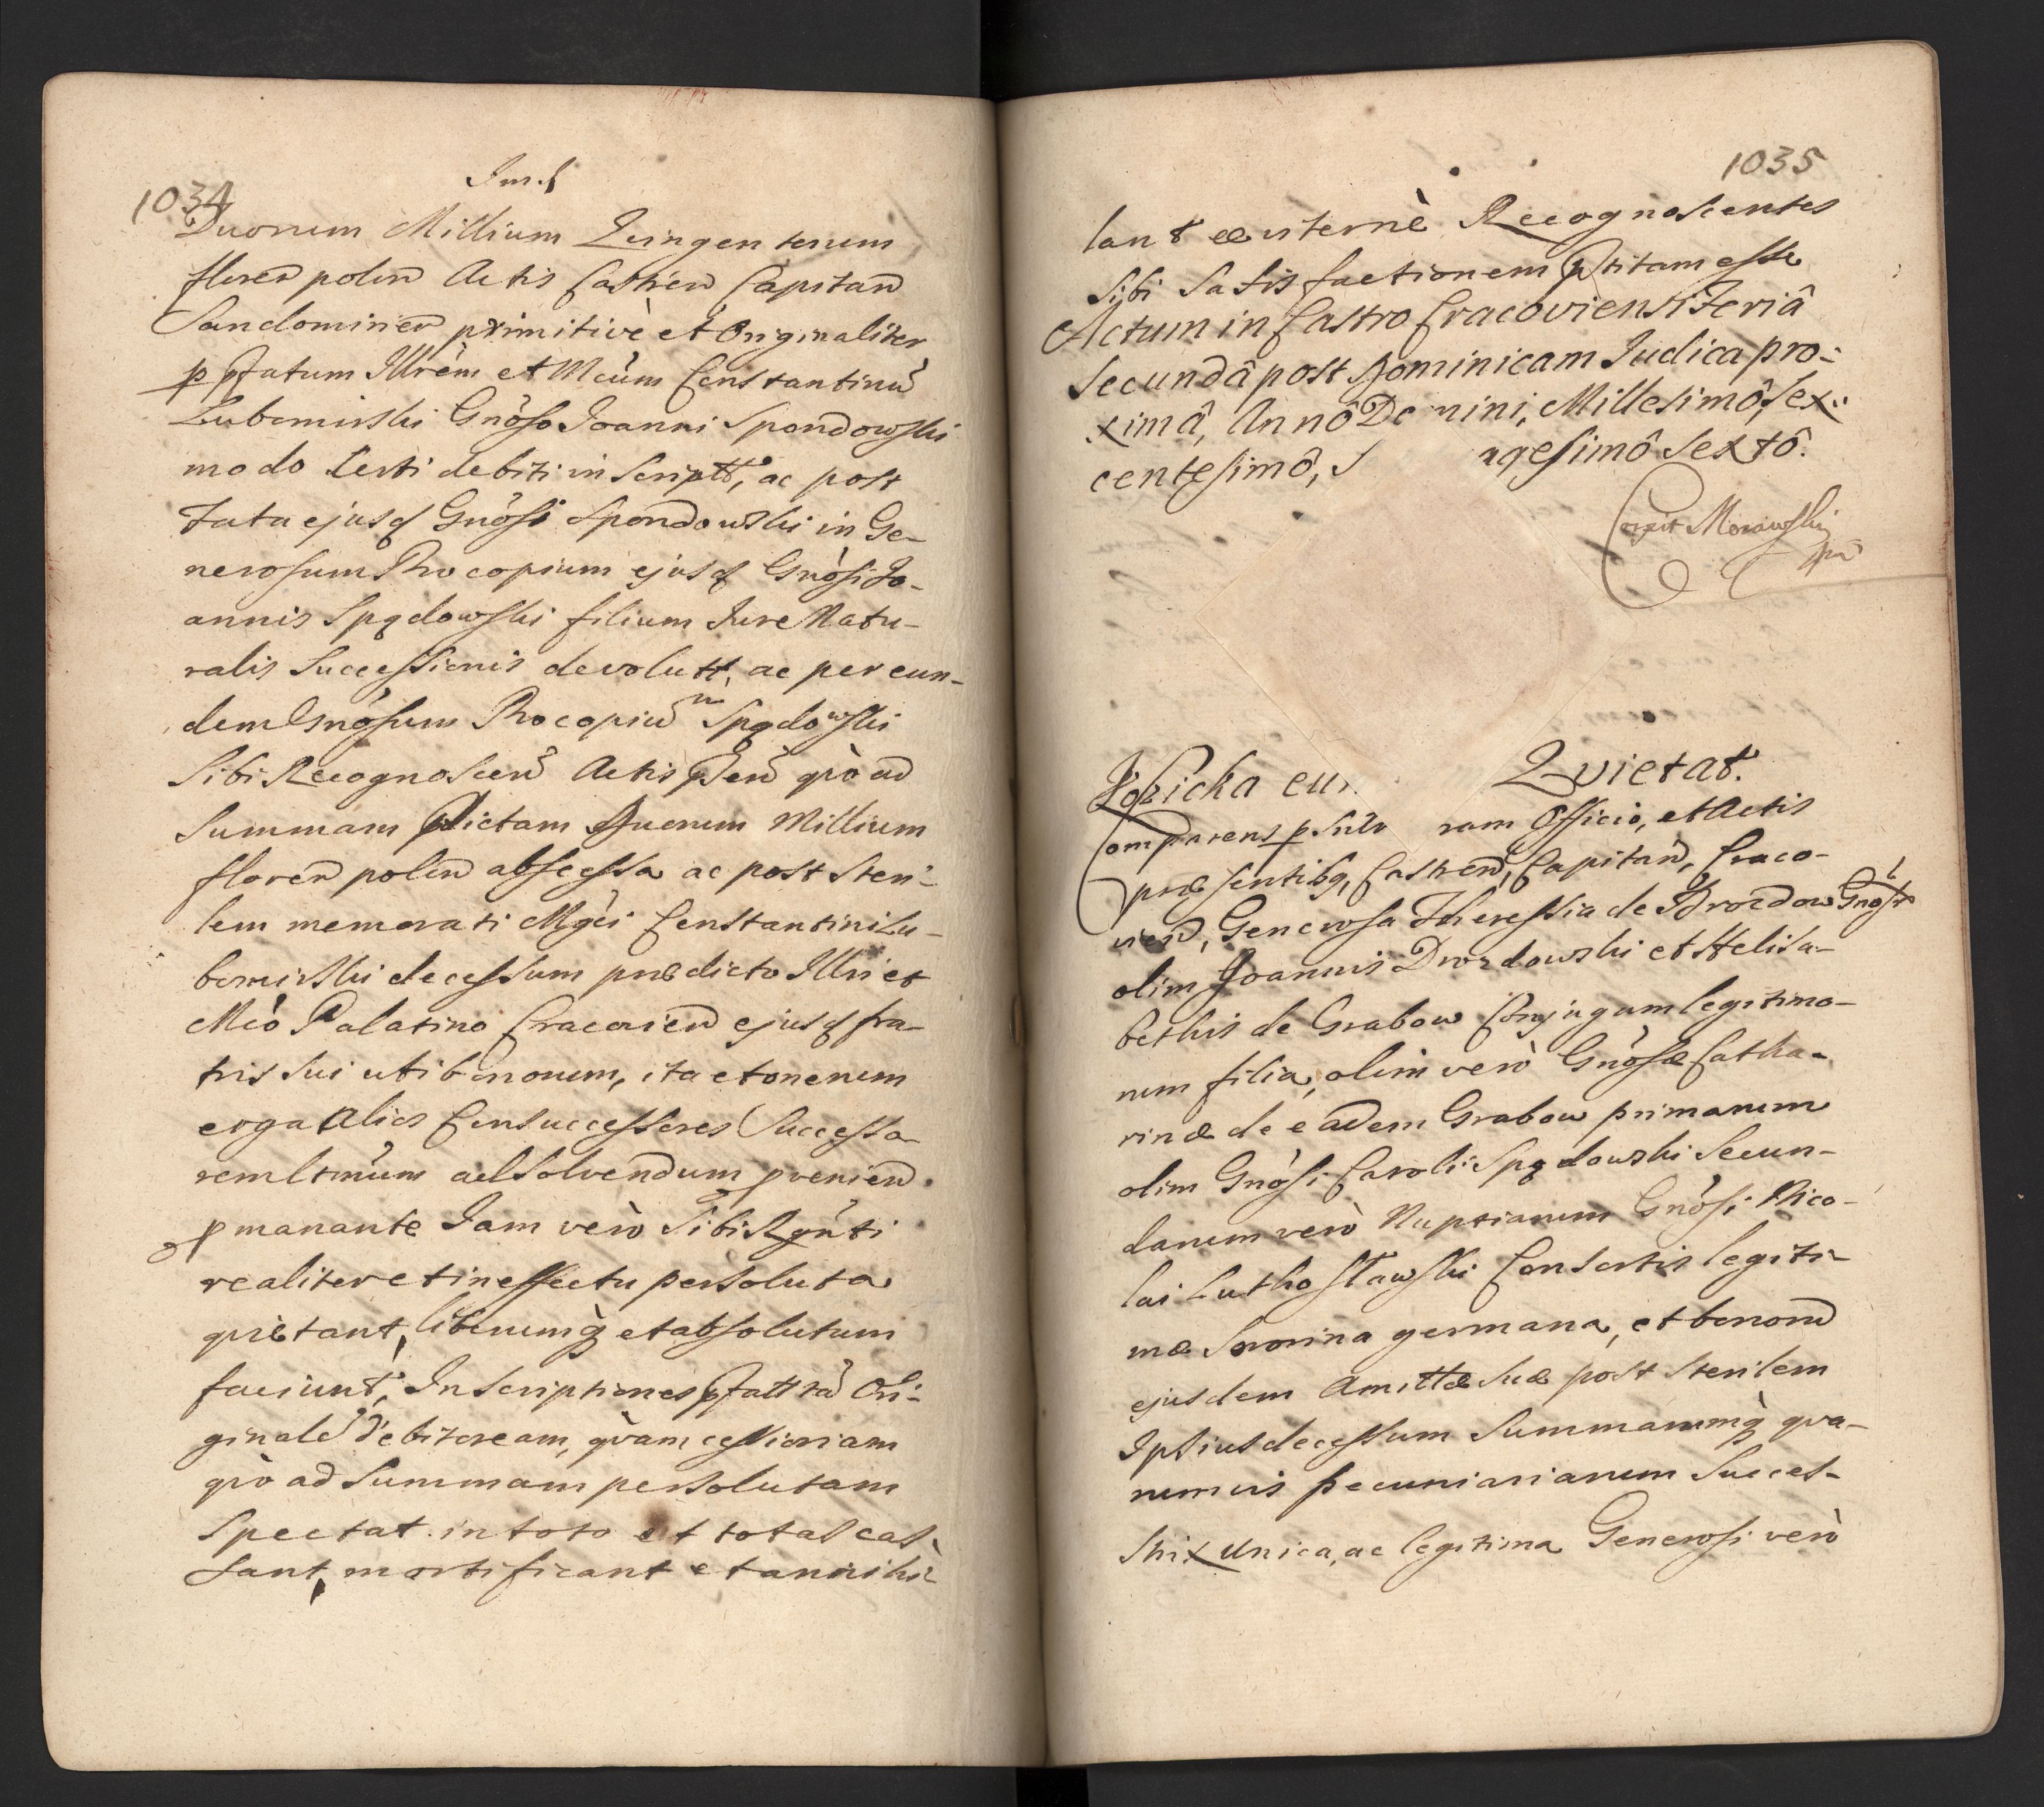 1034
Duorum Millium Qvingentorum
floren polon Actis Castren Capitan
Sandomirien primitivè et Originaliter
p pfatum Illrem et Mcum Constantinu
Lubomirski Gnoso Joanni Spondowski
modo Certi debiti inscriptt, ac post
Fata ejusq Gnosi Spondowski in Ge-
nerosum Procopium ejusq Gnosi Jo-
annis Spądowski filium Iure Natu-
ralis Successionis devolutt, ac per eun-
dem Gnosum Procopiu Spądowski
Sibi Recognoscen Actis pten qvo ad
Summam pdictam Duorum Millium
floren polon abscessa ac post steri-
lem memorati Mgci Constantini Lu-
bomirski decessum prædicto Illri et
Mco Palatino Cracovien ejusq fra-
tris sui uti bonorum, ita et onerum
erga alios Consuccessores Successo-
rem ltmum ad Solvendum pvenien
p manante Iam verò Sibi Rgnti
realiter et in effectu persoluta
qvietant, liberumq et absolutum
faciunt, Inscriptiones pfatt ta Ori-
ginale debitoream, qvam cessioriam
qvo ad Summam persolutam
Spectat. in toto et total cas-
sant, mortificant et annihi-
1035
lant æviternè Recognoscentes
Sibi Satisfactionem pstitam esse
Actum in Castro Cracoviensi Feriâ
Secundâ post Dominicam Iudica pro-
ximâ, Annô Domini, Millesimô, Sex-
centesimô, S agesimô Sextô.
Correxit Morawski
mp
Łosicka cum Qvietat.
Comparens p Sultr ram Officio, et Actis
præsentibq, Castren, Capitan, Craco-
vien, Generosa Theressia de Drozdow Gnosi
olim Joannis Drozdowski et Helisa-
bethis de Grabow Conjugum legitimo-
rum filia, olim verò Gnosæ Catha-
rinæ de eadem Grabow primarum
olim Gnosi Caroli Spądowski Secun-
darum verò Nuptiarum Gnosi Nico-
lai Luthosławski Consortis legiti-
mæ Sororina germana, et bonorum
ejusdem Amittæ Suæ post sterilem
Ipsius decessum Summarumq qva-
rumvis pecuniariarum Succes-
trix Unica, ac legitima Generosi verò